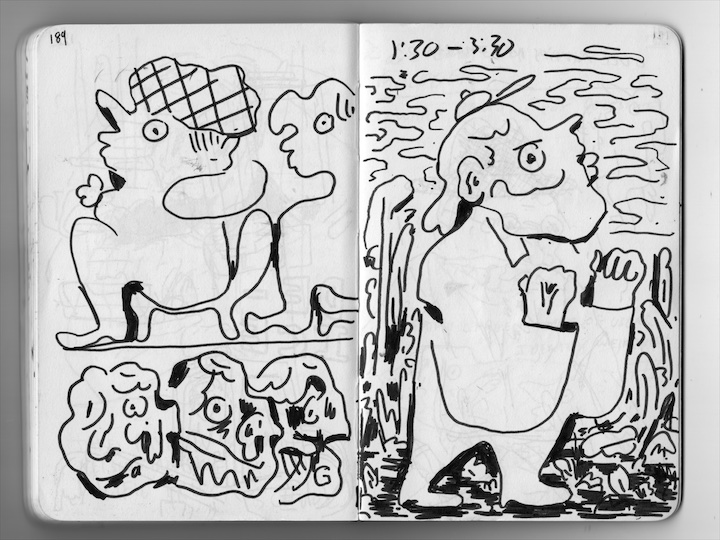 189
1:30 – 3:30